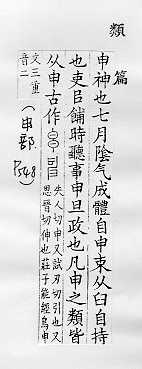 類
篇
申神也七月陰气成體自申束从臼自持
也吏㠯餔時聽事申旦政也凡申之類皆
从申古作
失人切申又試刃切引也又
思晉切伸也莊子能經鳥申
文三重
音二
(申部 P548)